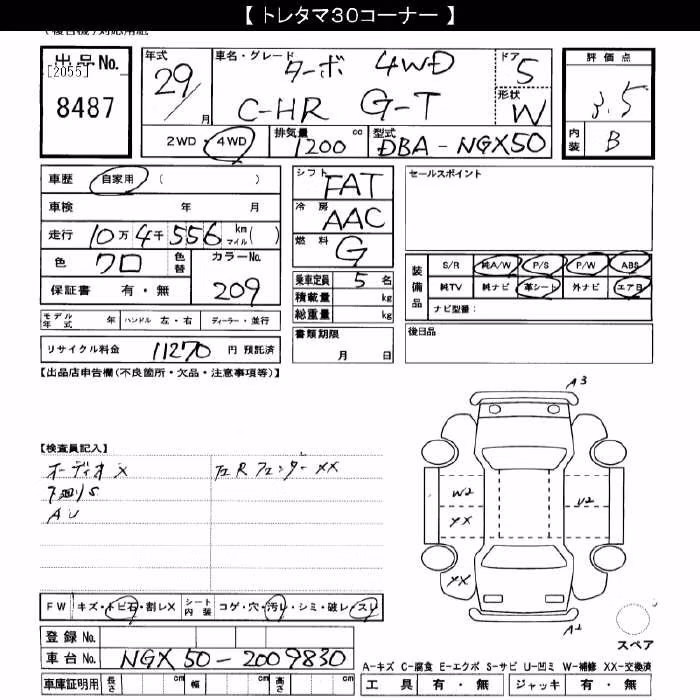 【 トレタマ30コーナー 】
出品No.
[2055]
8487
年式 29/ 月
車名・グレード ターボ 4WD
C-HR G-T
ドア 5
形状 W
評価点 3.5
内装 B
2WD・4WD
排気量 1200 cc
型式 DBA-NGX50
車歴 自家用 ( )
車検 年 月
走行 10万4千556 km マイル( )
色 クロ 色替 カラーNo. 209
保証書 有・無
モデル年式 年 ハンドル 左・右 ディーラー・並行
リサイクル料金 11270 円 預託済
シフト FAT
冷房 AAC
燃料 G
乗車定員 5 名
積載量 kg
総重量 kg
書類期限
月 日
セールスポイント
装備品 S/R 純A/W P/S P/W ABS
純TV 純ナビ 革シート 外ナビ エアB
ナビ型番:
後日品
【出品店申告欄(不良箇所・欠品・注意事項等)】
【検査員記入】
オーディオ X
下廻りS
AU
左Rフェンダー XX
A3
W2
U2
YX
YX
A2
スペア
FW キズ・トビ石・割レX シート内装 コゲ・穴・汚レ・シミ・破レ・スレ
登録No.
車台No. NGX50-2009830
車庫証明用 長さ cm 幅 cm 高さ cm
A-キズ C-腐食 E-エクボ S-サビ U-凹ミ W-補修 XX-交換済
工具 有・無 ジャッキ 有・無